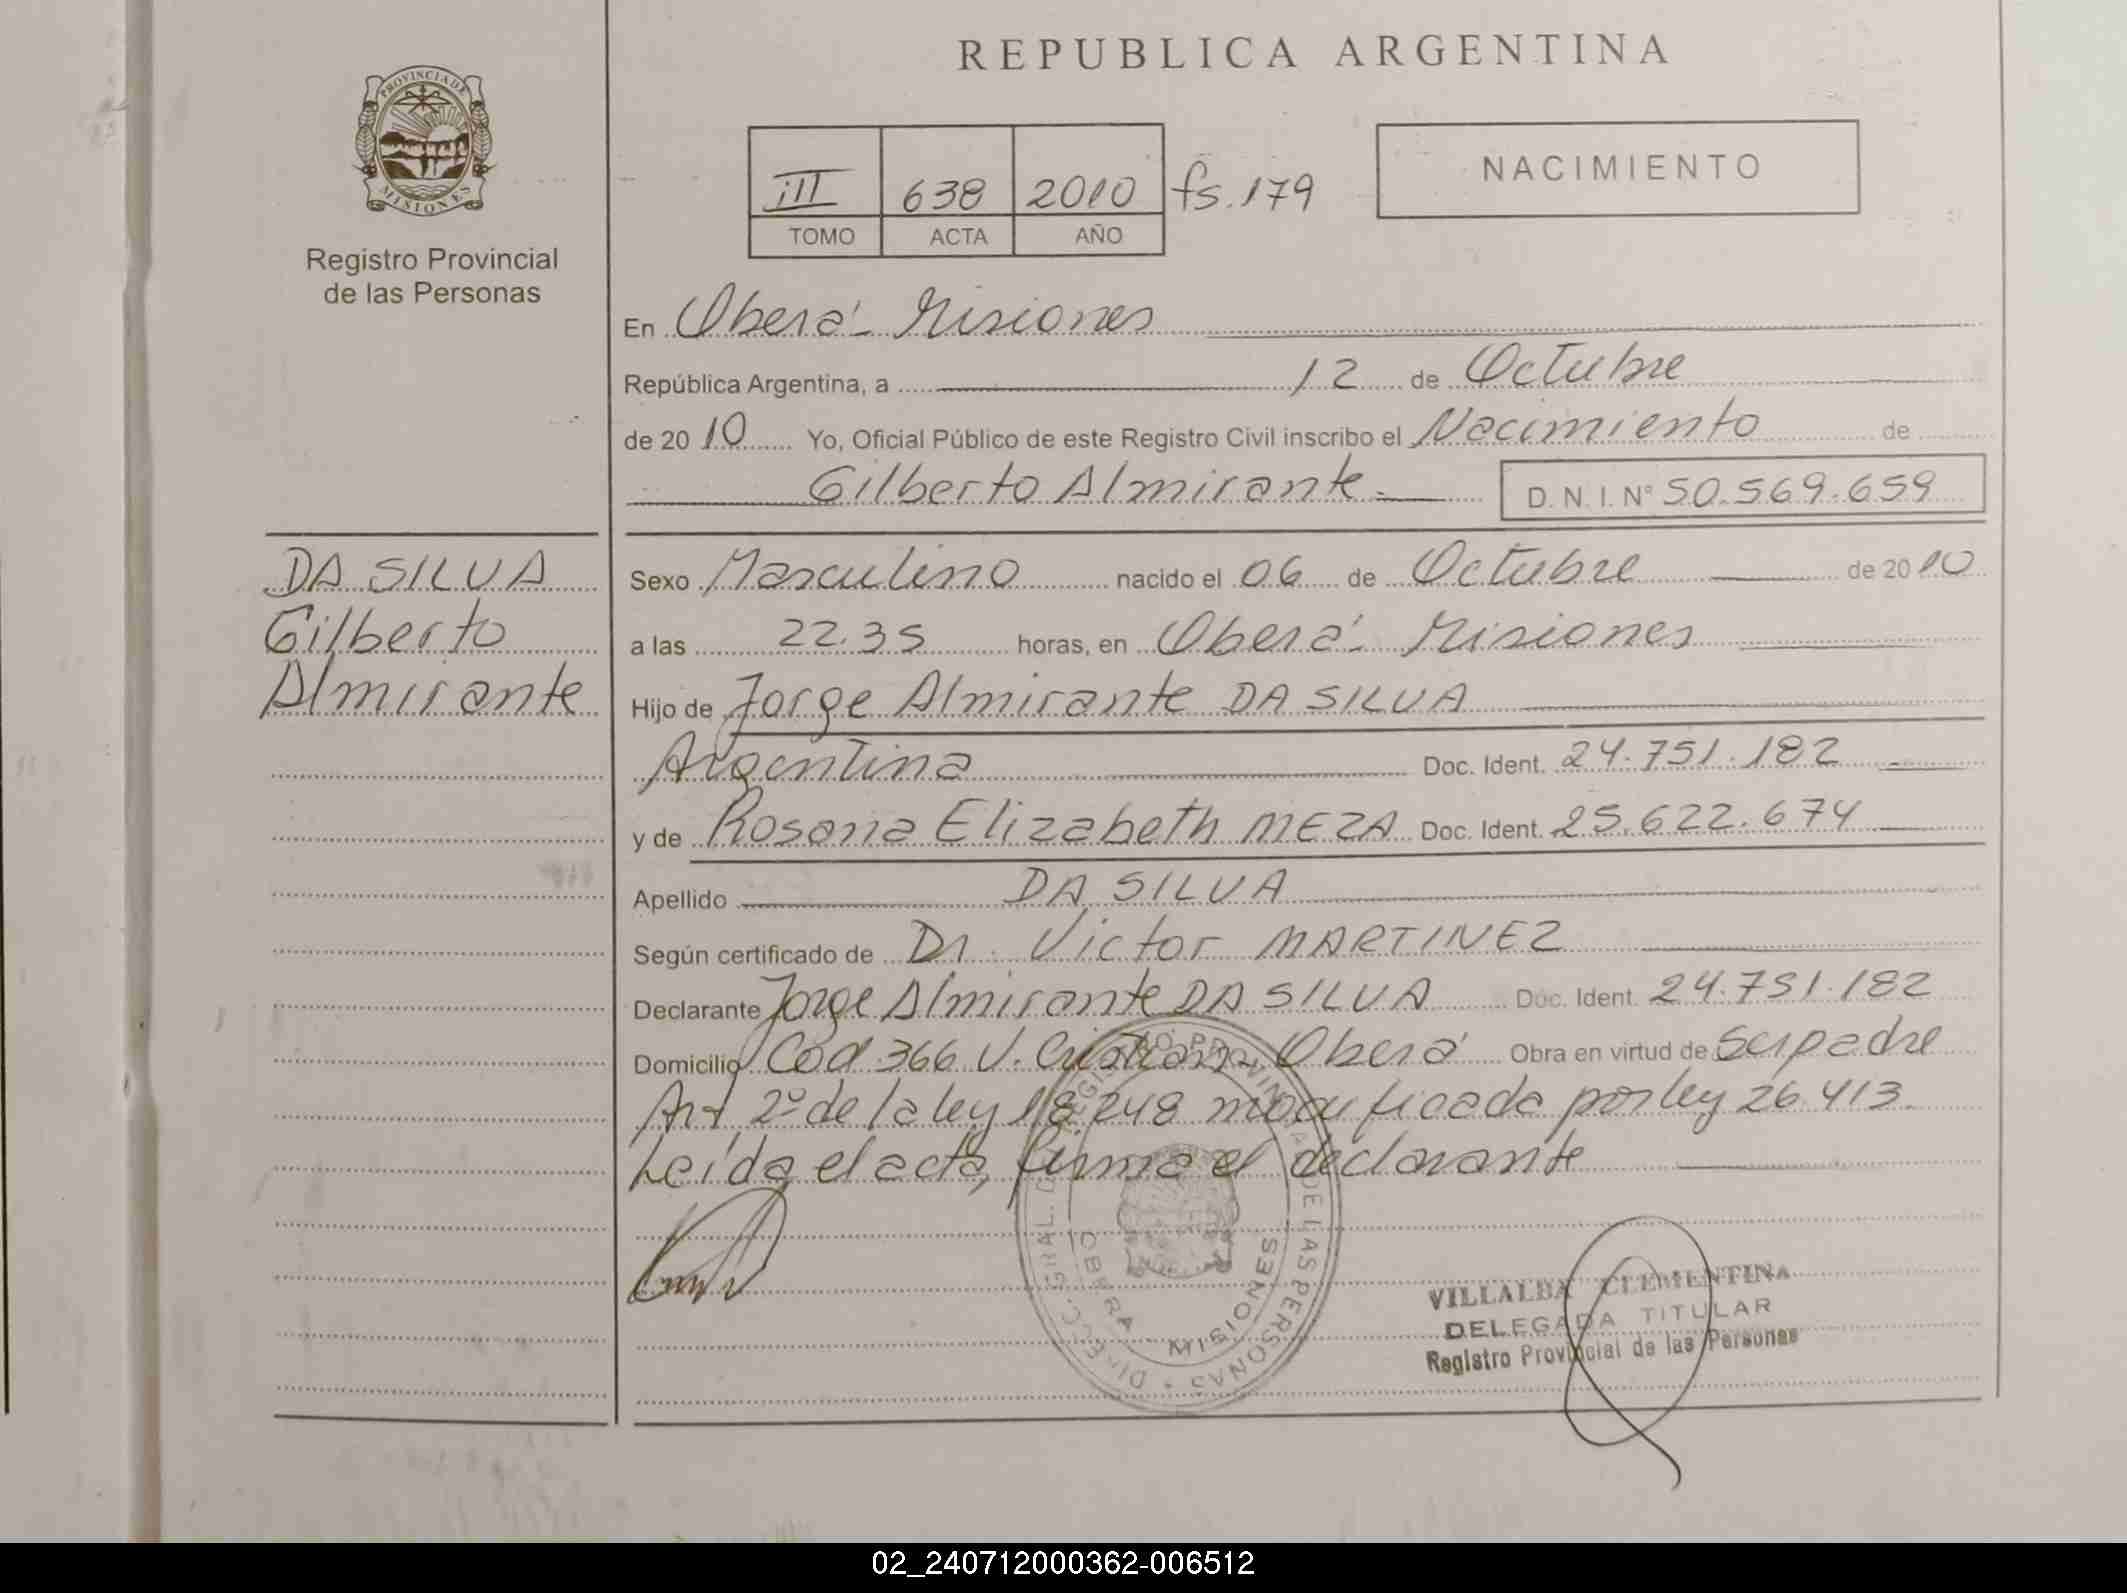 REPUBLICA ARGENTINA
PROVINCIA DE
MISIONES
Registro Provincial
de las Personas
III 638 2010 fs. 179
TOMO ACTA AÑO
NACIMIENTO
En Oberá - Misiones
República Argentina, a 12 de Octubre
de 2010 Yo, Oficial Público de este Registro Civil inscribo el Nacimiento de
Gilberto Almirante.- D. N. I. N° 50.569.659
DA SILVA
Gilberto
Almirante
Sexo Masculino nacido el 06 de Octubre de 2010
a las 22.35 horas, en Oberá - Misiones
Hijo de Jorge Almirante DA SILVA
Argentina Doc. Ident. 24.751.182
y de Rosana Elizabeth MEZA Doc. Ident. 25.622.674
Apellido DA SILVA
Según certificado de Dr. Victor MARTINEZ
Declarante Jorge Almirante DA SILVA Doc. Ident. 24.751.182
Domicilio 366 V. Cristiana Oberá Obra en virtud de Ser padre
Art 2º de la ley 18.248 modificada por ley 26.413.
Leída el acta, firma el declarante
DIRECC. GRAL. DEL REGISTRO PROVINCIAL DE LAS PERSONAS
OBERA - MISIONES
VILLALBA CLEMENTINA
DELEGADA TITULAR
Registro Provincial de las Personas
02_240712000362-006512